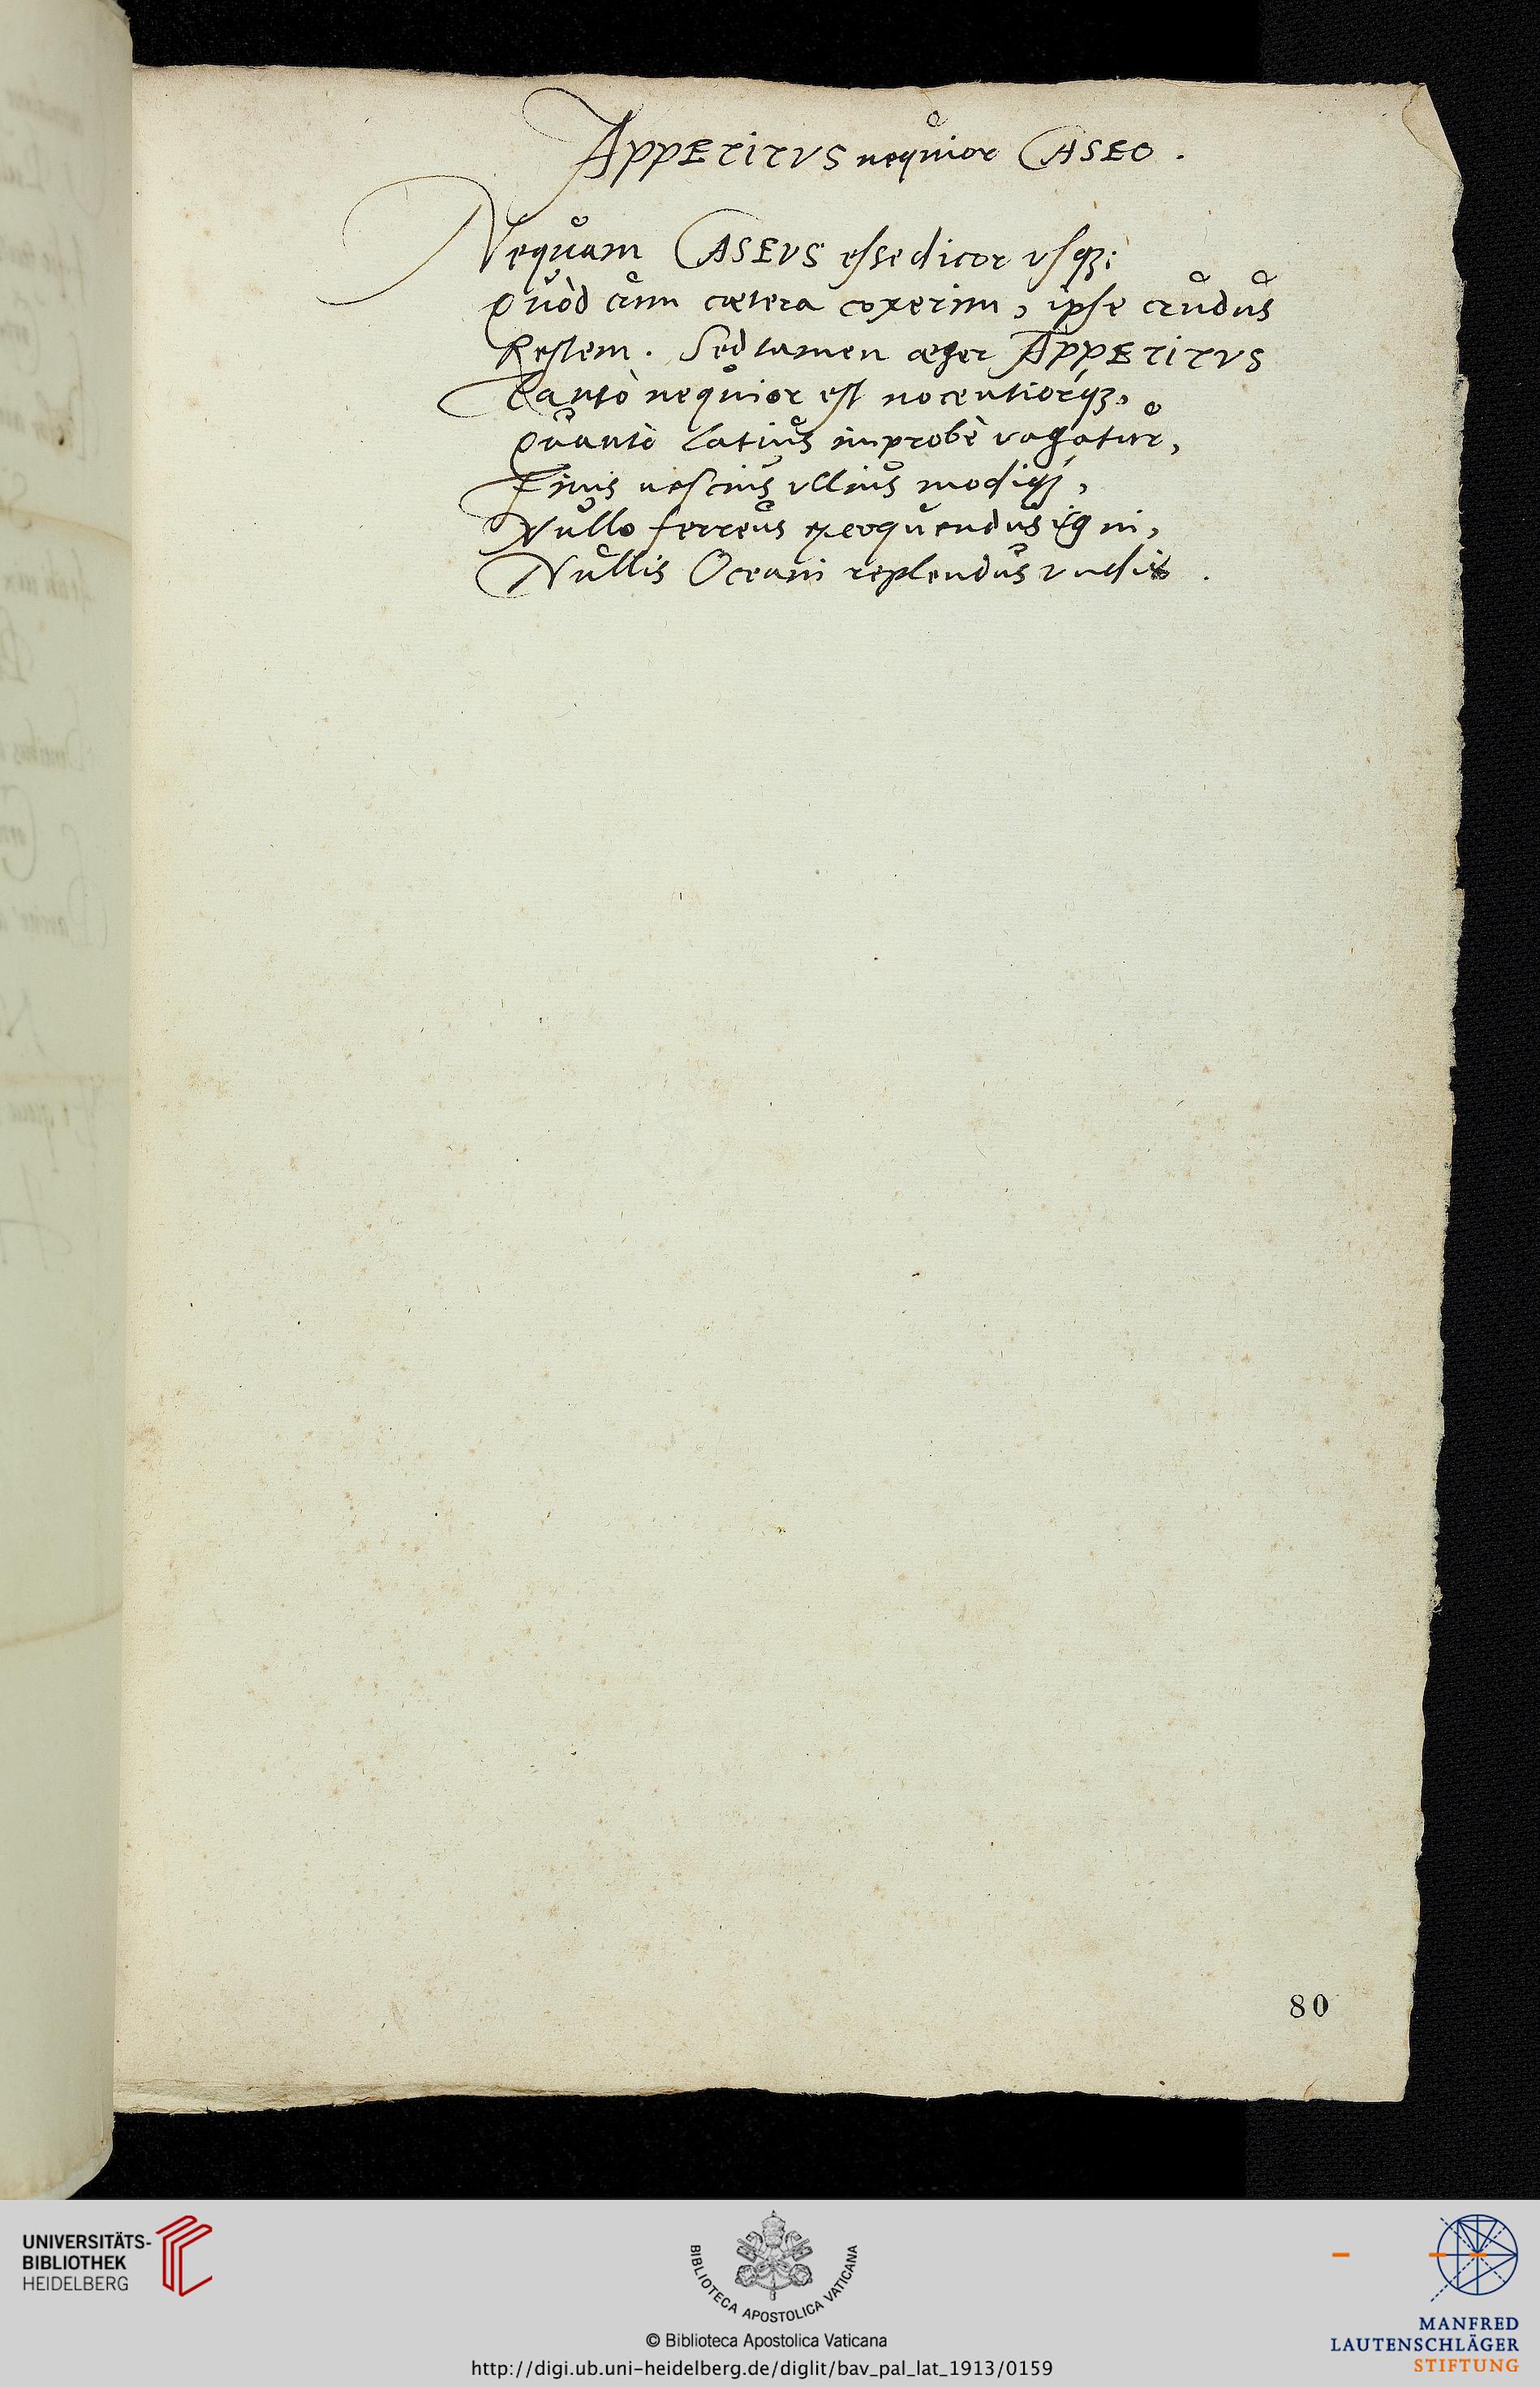 APPETITVS nequior CASEO.
Nequam CASEVS esse dicor vsq3:
Quòd cum cætera coxerim, ipse crudus
Restem. Sed tamen æger APPETITVS
Tantò nequior est nocentiorq́3,
Quantò latius improbè vagatur,
Finis nescius vllius modiq́3,
Nullo ferreus excoquendus igni,
Nullis Oceani replendus vndis.
80
UNIVERSITÄTS-
BIBLIOTHEK
HEIDELBERG
BIBLIOTECA APOSTOLICA VATICANA
© Biblioteca Apostolica Vaticana
http://digi.ub.uni-heidelberg.de/diglit/bav_pal_lat_1913/0159
MANFRED
LAUTENSCHLÄGER
STIFTUNG